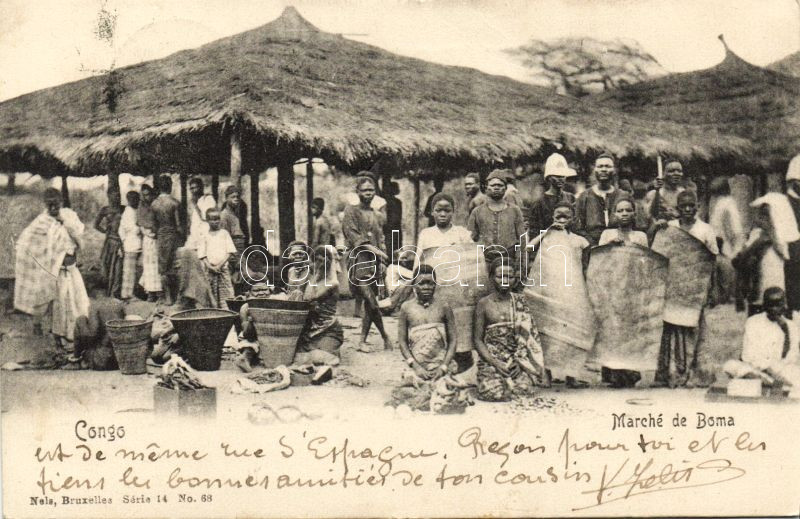 darabanth
Congo
Marché de Boma
est de même rue d'Espagne. Reçois pour toi et les
tiens les bonnes amitiés de ton cousin
Nels, Bruxelles Série 14 No. 68